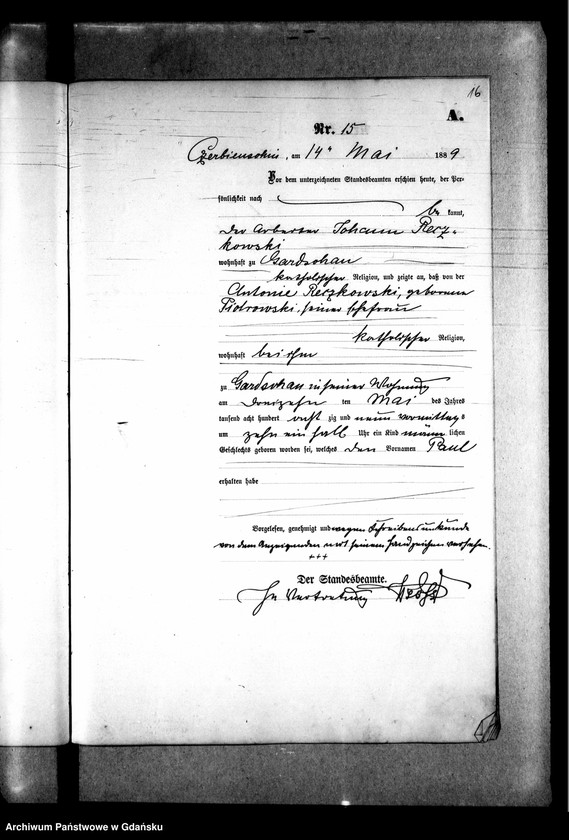 16
A.
Nr. 15
Czerbienschin, am 14ten Mai 1889
Vor dem unterzeichneten Standesbeamten erschien heute, der Per-
sönlichkeit nach
be kannt,
der Arbeiter Johann Recz-
kowski
wohnhaft zu Gardschau
katholischer Religion, und zeigte an, daß von der
Antonie Reczkowski, geborene
Piotrowski, seiner Ehefrau
katholischer Religion,
wohnhaft bei ihm
zu Gardschau in seiner Wohnung
am dreizehn ten Mai des Jahres
tausend acht hundert acht zig und neun vormittags
um zehn ein halb Uhr ein Kind männ lichen
Geschlechts geboren worden sei, welches den Vornamen Paul
erhalten habe
Vorgelesen, genehmigt und wegen Schreibensunkunde
von dem Anzeigenden mit seinem Handzeichen versehen.
+++
Der Standesbeamte.
In Vertretung
Archiwum Państwowe w Gdańsku